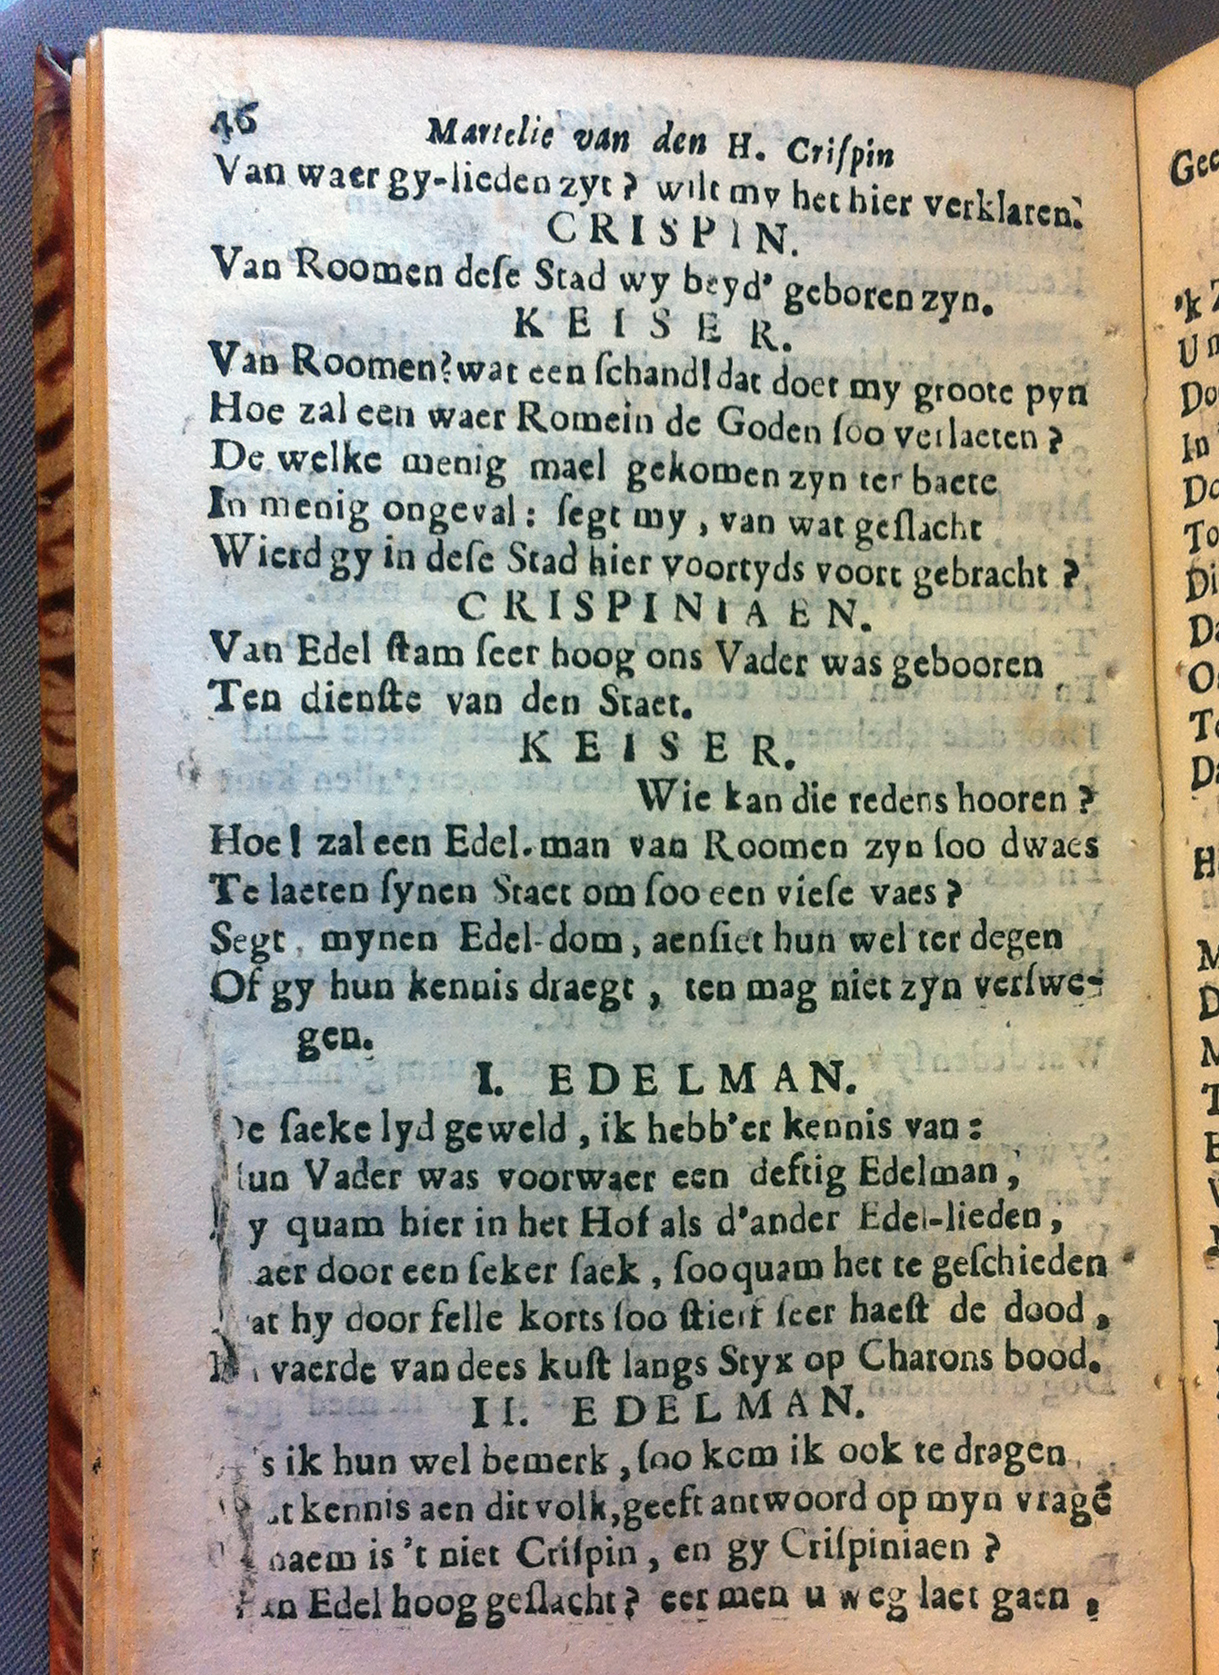 46 Martelie van den H. Criſpin
Van waer gy-lieden zyt? wilt my het hier verklaren.
CRISPIN.
Van Roomen deſe Stad wy beyd' geboren zyn.
KEISER.
Van Roomen? wat een ſchand! dat doet my groote pyn
Hoe zal een waer Romein de Goden ſoo verlaeten?
De welke menig mael gekomen zyn ter baete
In menig ongeval: ſegt my, van wat geſlacht
Wierd gy in deſe Stad hier voortyds voort gebracht?
CRISPINIAEN.
Van Edel ſtam ſeer hoog ons Vader was gebooren
Ten dienſte van den Staet.
KEISER.
Wie kan die redens hooren?
Hoe! zal een Edel-man van Roomen zyn ſoo dwaes
Te laeten ſynen Staet om ſoo een vieſe vaes?
Segt, mynen Edel-dom, aenſiet hun wel ter degen
Of gy hun kennis draegt, ten mag niet zyn verſwe-
gen.
I. EDELMAN.
De ſaeke lyd geweld, ik hebb'er kennis van:
Hun Vader was voorwaer een deftig Edelman,
y quam hier in het Hof als d'ander Edel-lieden,
aer door een ſeker ſaek, ſoo quam het te geſchieden
at hy door felle korts ſoo ſtierf ſeer haeſt de dood,
vaerde van dees kuſt langs Styx op Charons bood.
II. EDELMAN.
s ik hun wel bemerk, ſoo kom ik ook te dragen
t kennis aen dit volk, geeft antwoord op myn vrage
naem is 't niet Criſpin, en gy Criſpiniaen?
an Edel hoog geſlacht? eer men u weg laet gaen,